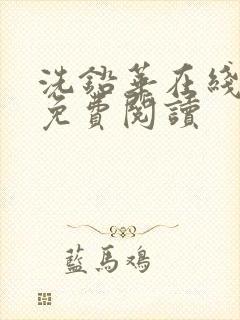 洗鉛華在綫
免費閱讀
藍馬鷄